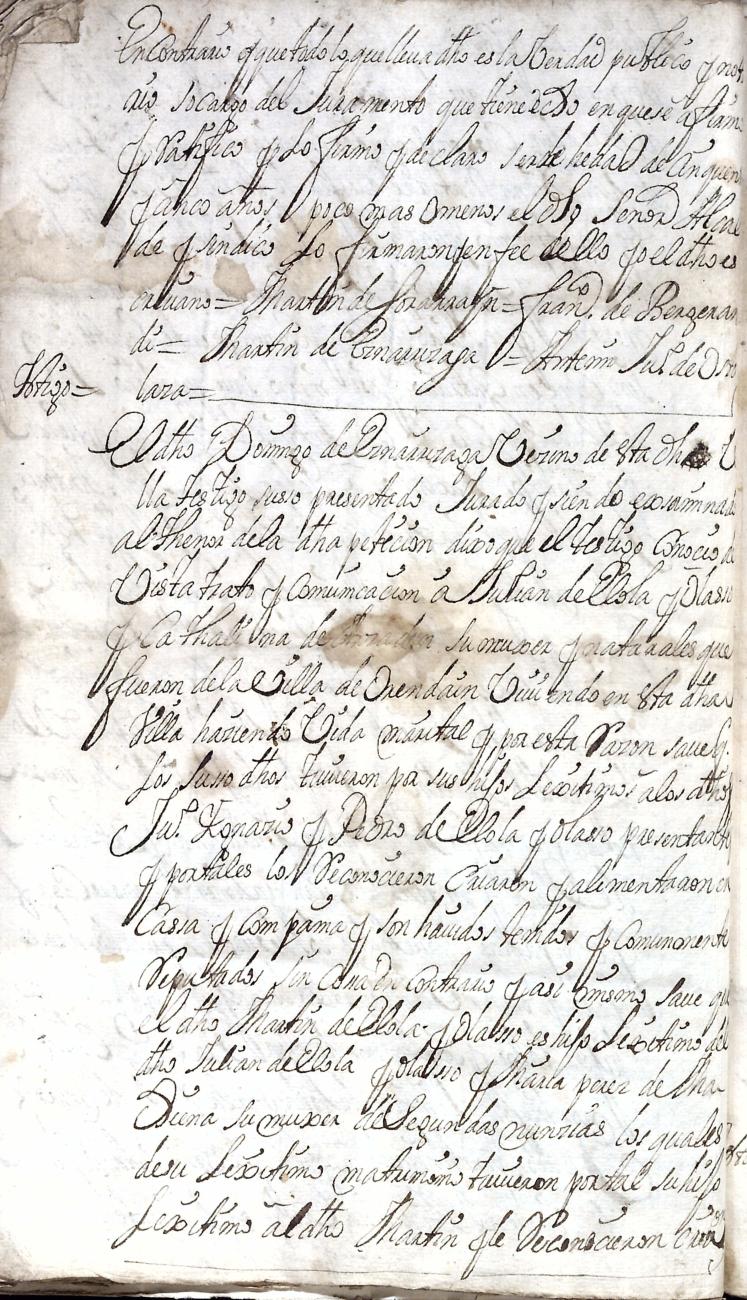 En contrario y que todo lo que lleva dho es la Verdad publico y noto
rio so cargo del Juramento que tiene echo en que se afirmo
y Ratifico y Lo firmo y declaro ser de hedad de cinquenta
y cinco años poco mas o menos el dho Señor Alcal
de y sindico Lo firmaron y en fee de ello yo el dho es
crivano = Martin de = Franco. de Bergaran
di = Martin de Eznarrizaga = Antemi Jun. de Oto
laza =
Testigo =
El dho Domingo de Eznarrizaga Vezino de esta dha Vi
lla testigo susso presentado Jurado y siendo exsaminado
al thenor de la dha peticion dixo que el testigo Conocio de
Vista trato y Comunicacion a Julian de Elola y Olasso
y Cathalina de su muxer y naturales que
fueron de la Villa de Orendain Viuiendo en esta dha
Villa haziendo Vida maridal y por esta Razon saue q.
Los suso dhos tuuieron por sus hijos Lexitimos a los dhos
Jun. Ygnazio y Pedro de Elola y Olasso presentantes
y por tales los Reconocieron Criaron y alimentaron en
Cassa y Compania y son hauidos tenidos y Comunmente
Reputados sin Cossa en contrario y asi mismo saue que
el dho Martin de Elola y Olasso es hijo Lexitimo del
dho Julian de Elola y olasso y Maria perez de Cha
su muxer de segundas nunzias los quales
de su Lexitimo matrimonio tuuieron por tal su hijo
Lexitimo a el dho Martin y le Reconocieron